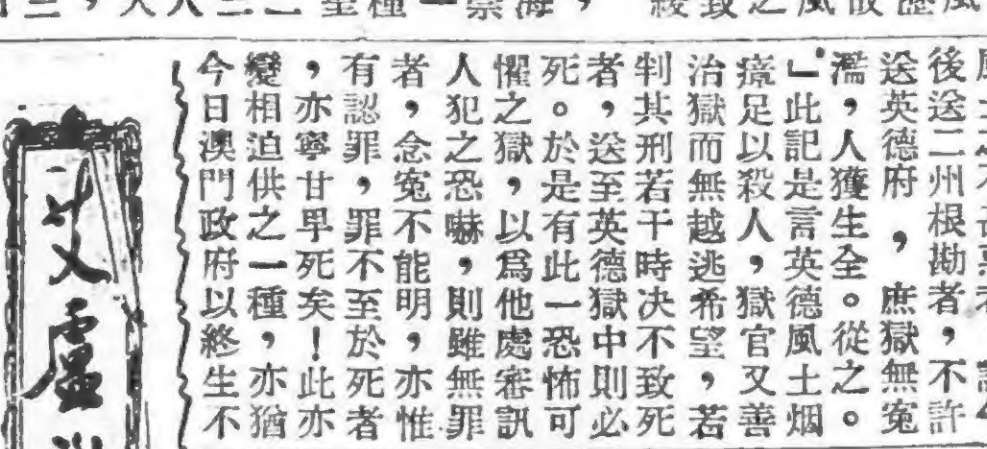 後送二州根勘者，不許
送英德府，庶獄無寃
濫，人獲生全。從之。
」此記是言英德風土烟
瘴足以殺人，獄官又善
治獄而無越逃希望，若
判其刑若干時决不致死
者，送至英德獄中則必
死。於是有此一恐怖可
懼之獄，以爲他處審訊
人犯之恐嚇，則雖無罪
者，念寃不能明，亦惟
有認罪，罪不至於死者
，亦寧甘早死矣！此亦
變相迫供之一種，亦猶
今日澳門政府以終生不